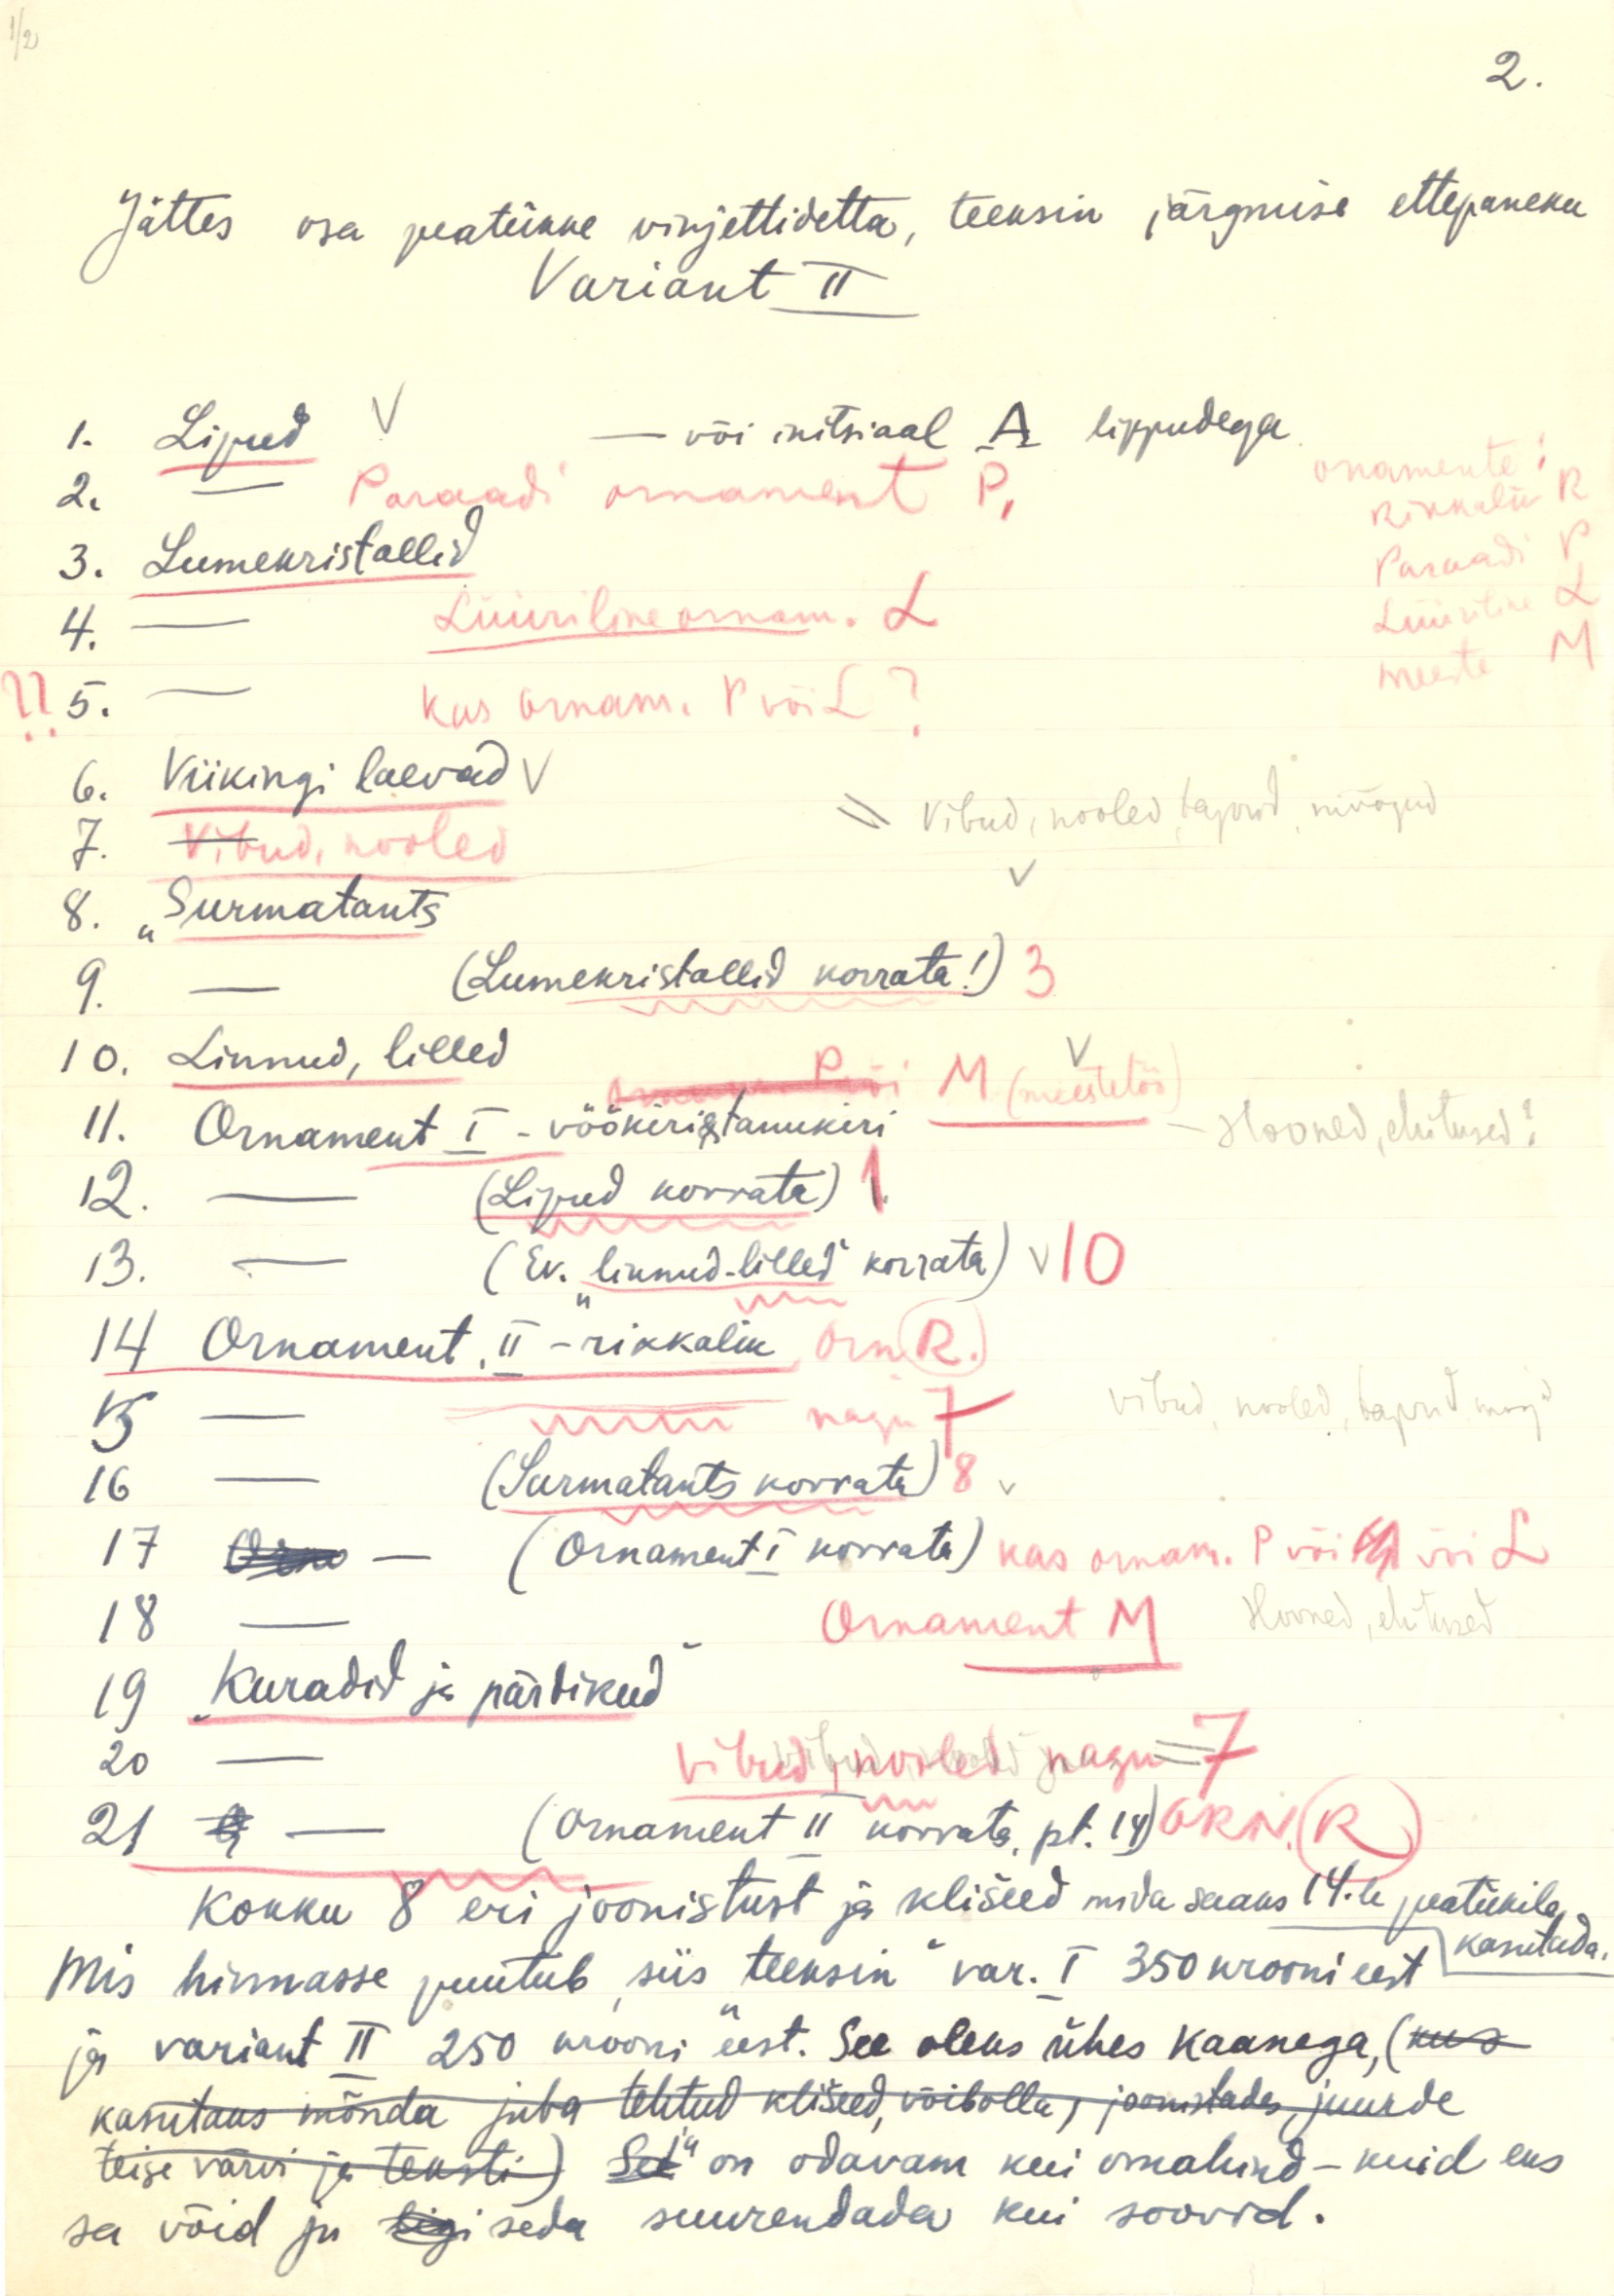 1/2
2.
Jättes osa peatükke vinjettideta, teeksin järgmise ettepaneku
Variant II
1. Lipud V — või initsiaal A lippudega
2. — Paraadi ornament P,
ornamente:
Rikkalik R
Paraadi P
Lüüriline L
meeste M
3. Lumekristallid
4. — Lüüriline ornam. L
?? 5. — kas ornam. P või L?
6. Viikingi laevad V
= Vibud, nooled, taprid, mõõgad
7. — Vibud, nooled
V
8. „Surmatants
9. — (Lumekristallid korrata!) 3
10. Linnud, lilled V
P või M (meestetöö)
11. Ornament I - vöökiri & tanukiri — Hooned, ehitused?
12. — (Lipud korrata) 1.
13. — (Ev. „linnud-lilled" korrata) V 10
14 Ornament II - rikkalik orn R.
15 — nagu 7 vibud, nooled, taprid
16 — (Surmatants korrata) 8 v
17 Orn — (Ornament I korrata) kas ornam. P või või L
18 — Ornament M Hooned, ehitused
19 „Kuradid ja pärdikud"
20 — vibud, nooled nagu = 7
21 — (Ornament II korrata, pt. 14) ORN. R
Kokku 8 eri joonistust ja klišeed mida saaks 14-le peatükile
kasutada.
Mis hinnasse puutub, siis „teeksin" var. I 350 krooni eest
ja variant II 250 krooni eest. See oleks ühes kaanega, (kus
kasutaks mõnda juba tehtud klišeed, võibolla, joonistades juurde
teise värvi ja teksti) See on odavam kui omahind - kuid eks
sa võid ju seda suurendada kui soovid.